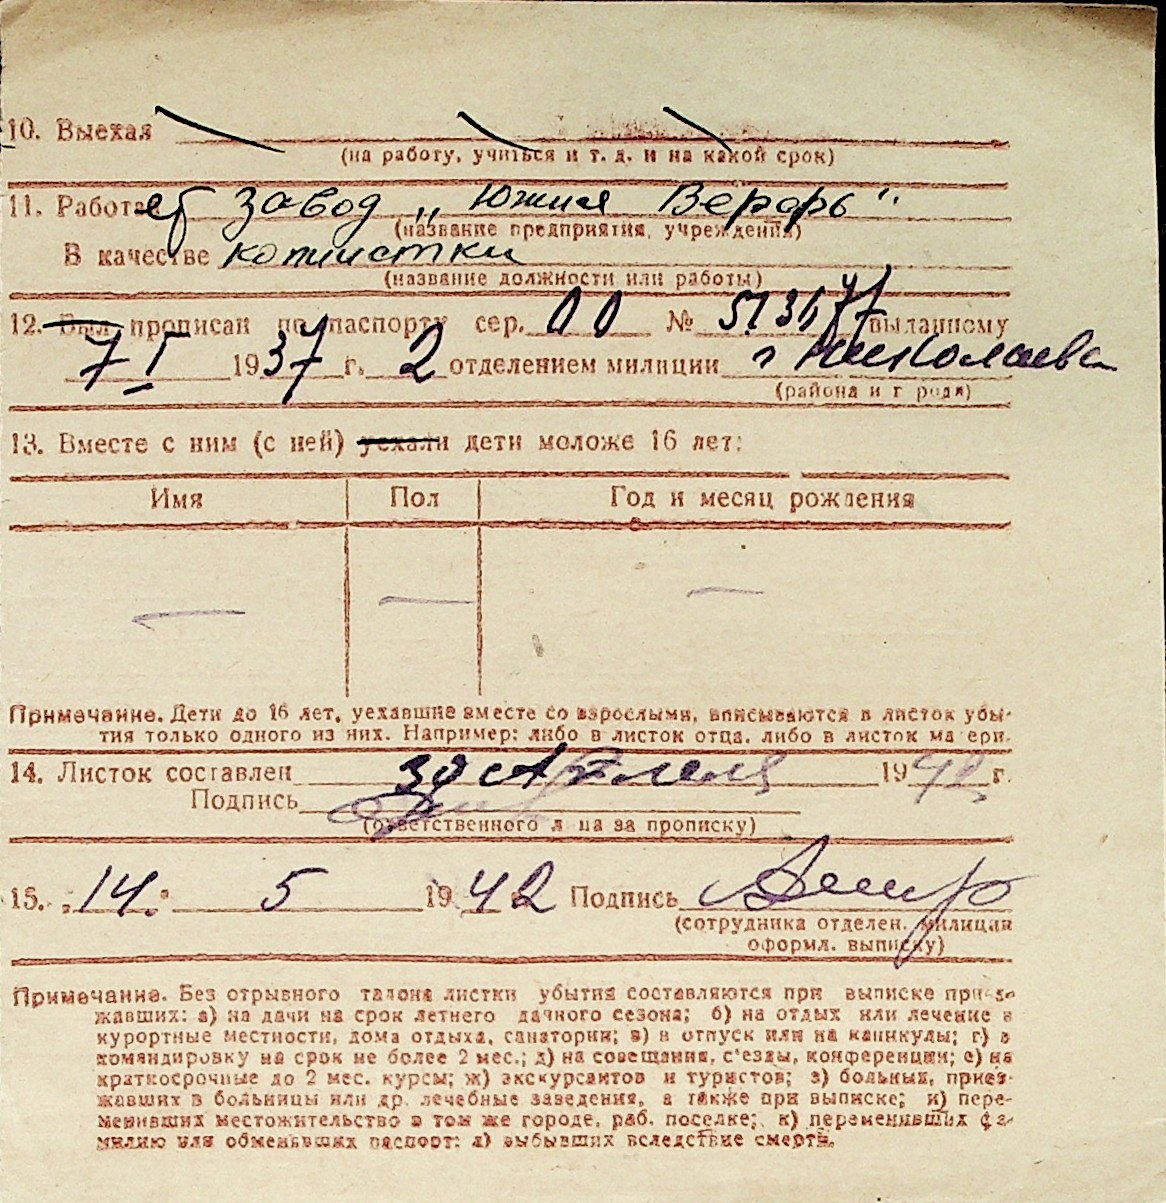 10. Выехал
(на работу, учиться и т. д. и на какой срок)
11. Работает завод „Южная Верфь"
(название предприятия, учреждения)
В качестве копиистки
(название должности или работы)
12. Был прописан по паспорту сер. 00 № выданному
7 I 1937 г. 2 отделением милиции г Николаева
(района и г рода)
13. Вместе с ним (с ней) уехали дети моложе 16 лет:
Имя Пол Год и месяц рождения
— — —
Примечание. Дети до 16 лет, уехавшие вместе со взрослыми, вписываются в листок убы-
тия только одного из них. Например: либо в листок отца, либо в листок ма ери.
14. Листок составлен 30 Апреля 1942 г.
Подпись
(ответственного л ца за прописку)
15. „14" 5 1942 Подпись
(сотрудника отделен. милиции
оформл. выписку)
Примечание. Без отрывного талона листки убытия составляются при выписке приез-
жавших: а) на дачи на срок летнего дачного сезона; б) на отдых или лечение в
курортные местности, дома отдыха, санатории; в) в отпуск или на каникулы; г) в
командировку на срок не более 2 мес.; д) на совещания, с'езды, конференции; е) на
краткосрочные до 2 мес. курсы; ж) экскурсантов и туристов; з) больных, приез-
жавших в больницы или др. лечебные заведения, а также при выписке; и) пере-
менивших местожительство в том же городе, раб. поселке; к) переменивших фа-
милию или обменявших паспорт: л) выбывших вследствие смерти.